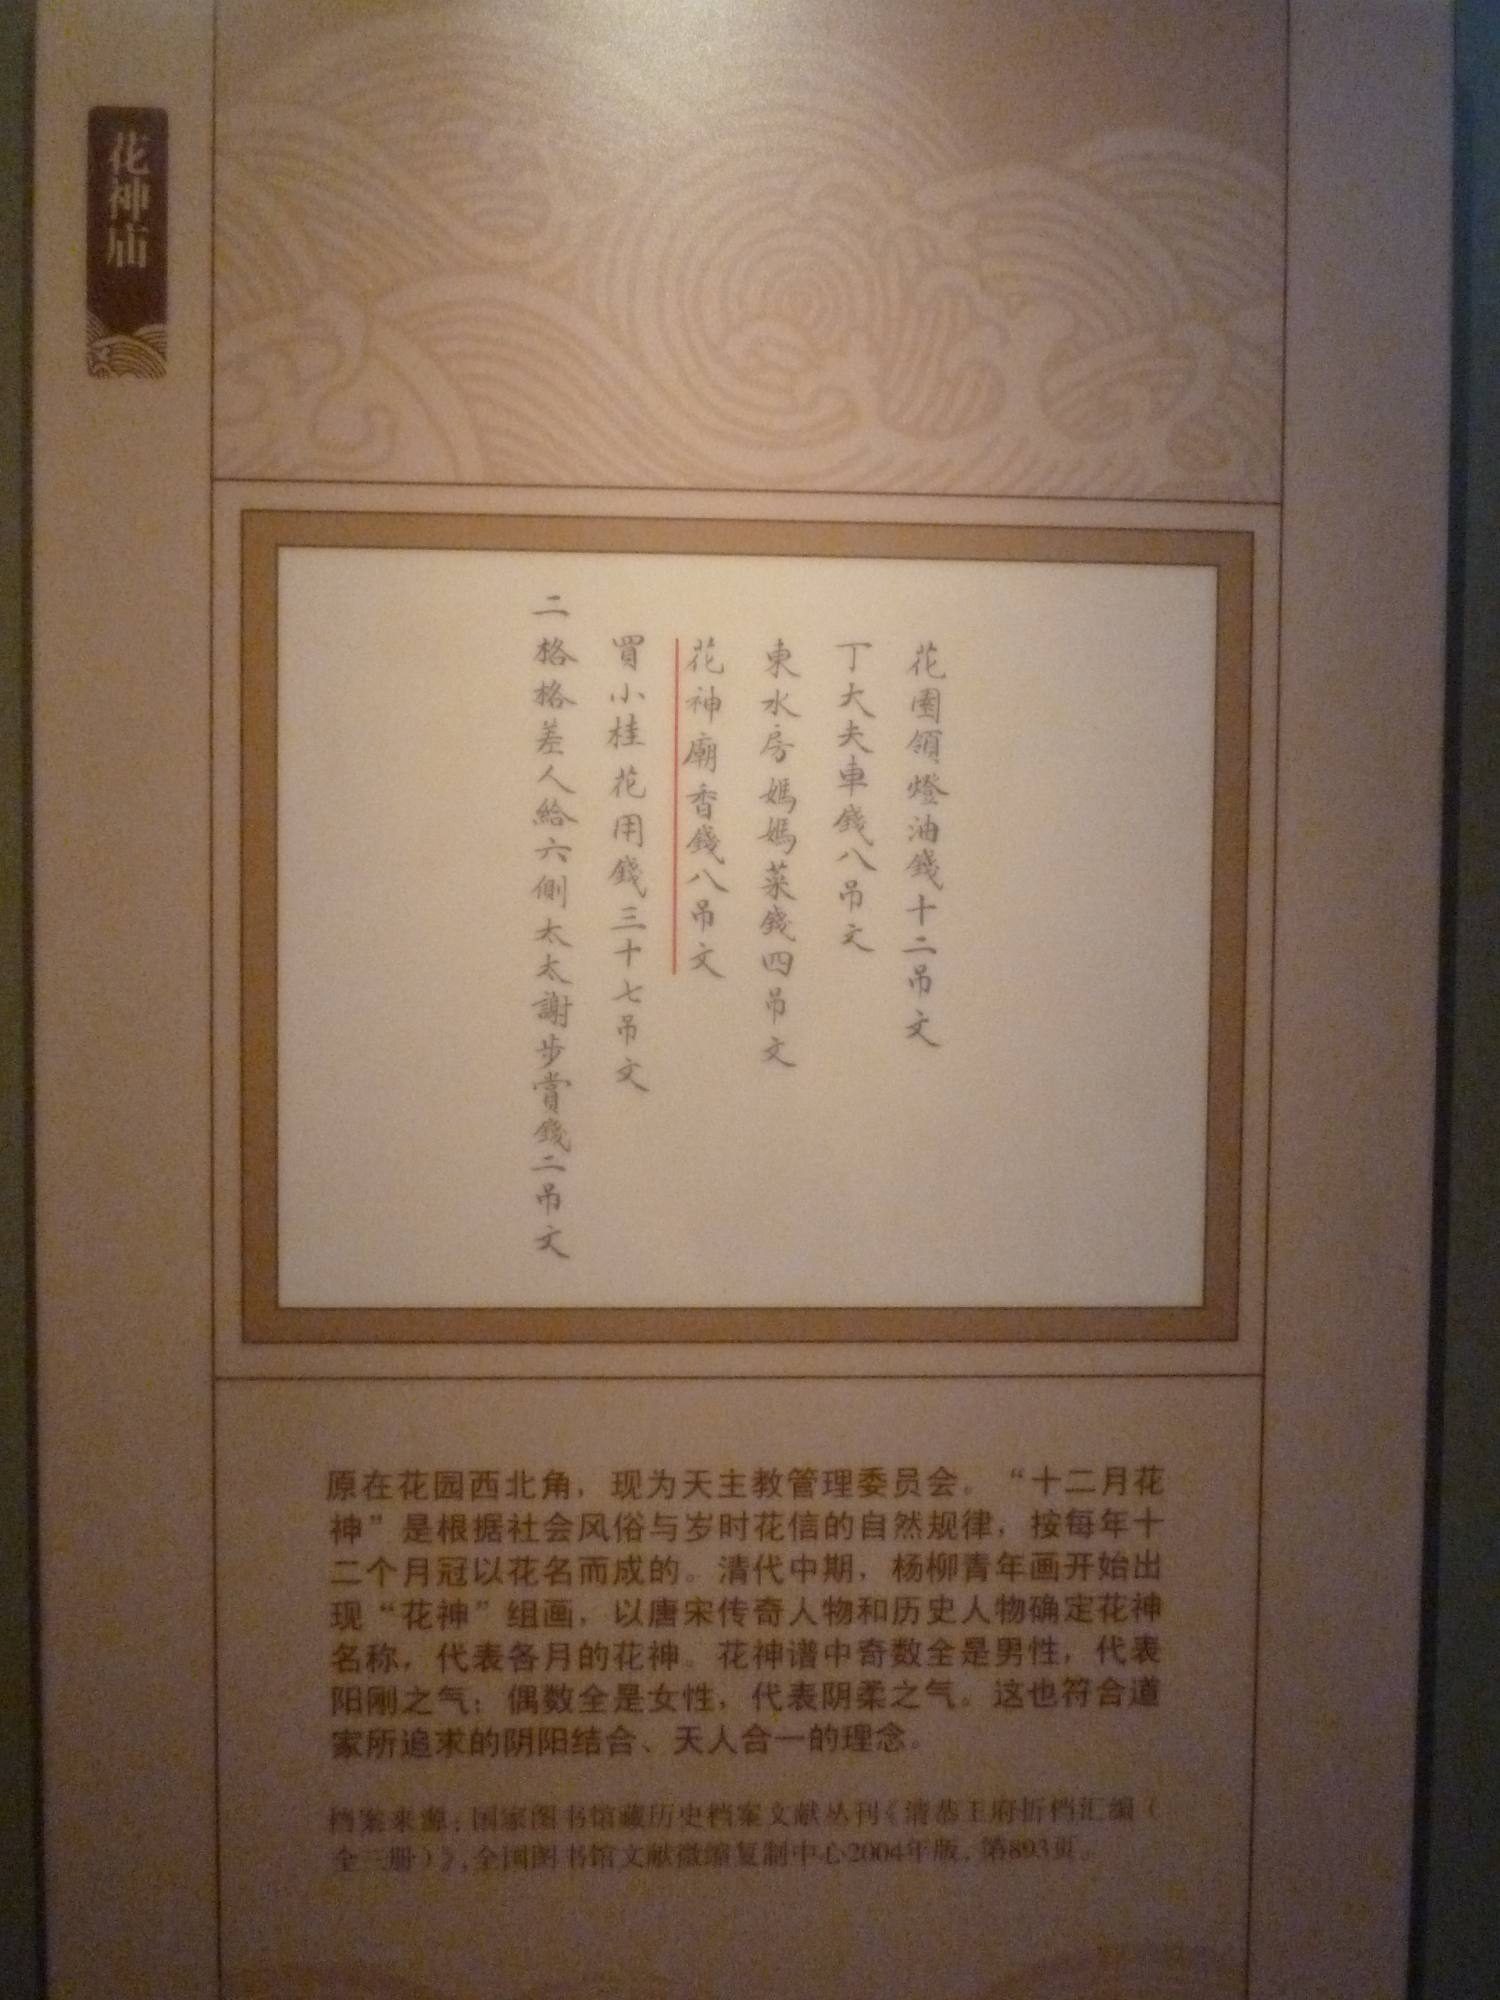 花神庙
花園領燈油錢十二吊文
丁大夫車錢八吊文
東水房媽媽菜錢四吊文
花神廟香錢八吊文
買小桂花用錢三十七吊文
二格格差人給六側太太謝步賞錢二吊文
原在花园西北角，现为天主教管理委员会。“十二月花
神”是根据社会风俗与岁时花信的自然规律，按每年十
二个月冠以花名而成的。清代中期，杨柳青年画开始出
现“花神”组画，以唐宋传奇人物和历史人物确定花神
名称，代表各月的花神。花神谱中奇数全是男性，代表
阳刚之气；偶数全是女性，代表阴柔之气。这也符合道
家所追求的阴阳结合、天人合一的理念。
档案来源：国家图书馆藏历史档案文献丛刊《清恭王府折档汇编（
全三册）》，全国图书馆文献微缩复制中心2004年版，第893页。